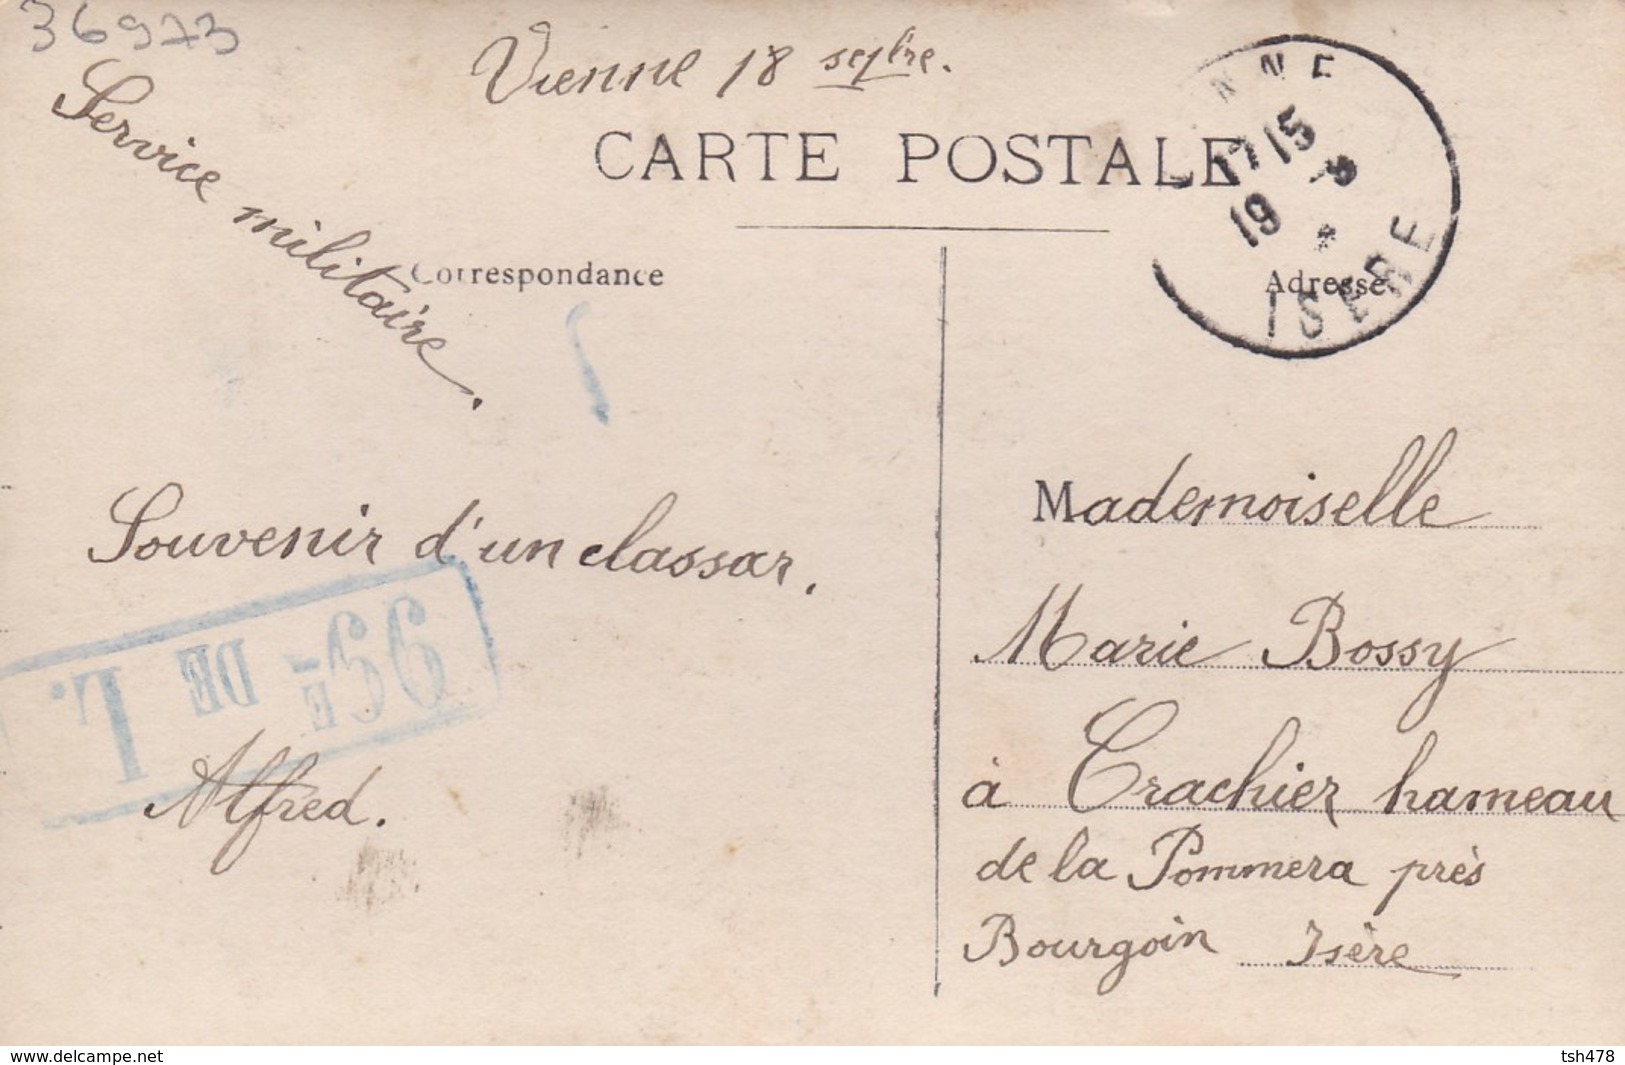 36973
Vienne 18 sepbre.
Service militaire.
CARTE POSTALE
NNE
17 15
19 9
*
ISERE
Correspondance
Adresse
Souvenir d'un classar.
99E DE L.
Alfred.
Mademoiselle
Marie Bossy
à Crachier hameau
de la Pommera près
Bourgoin Isère
www.delcampe.net
tsh478